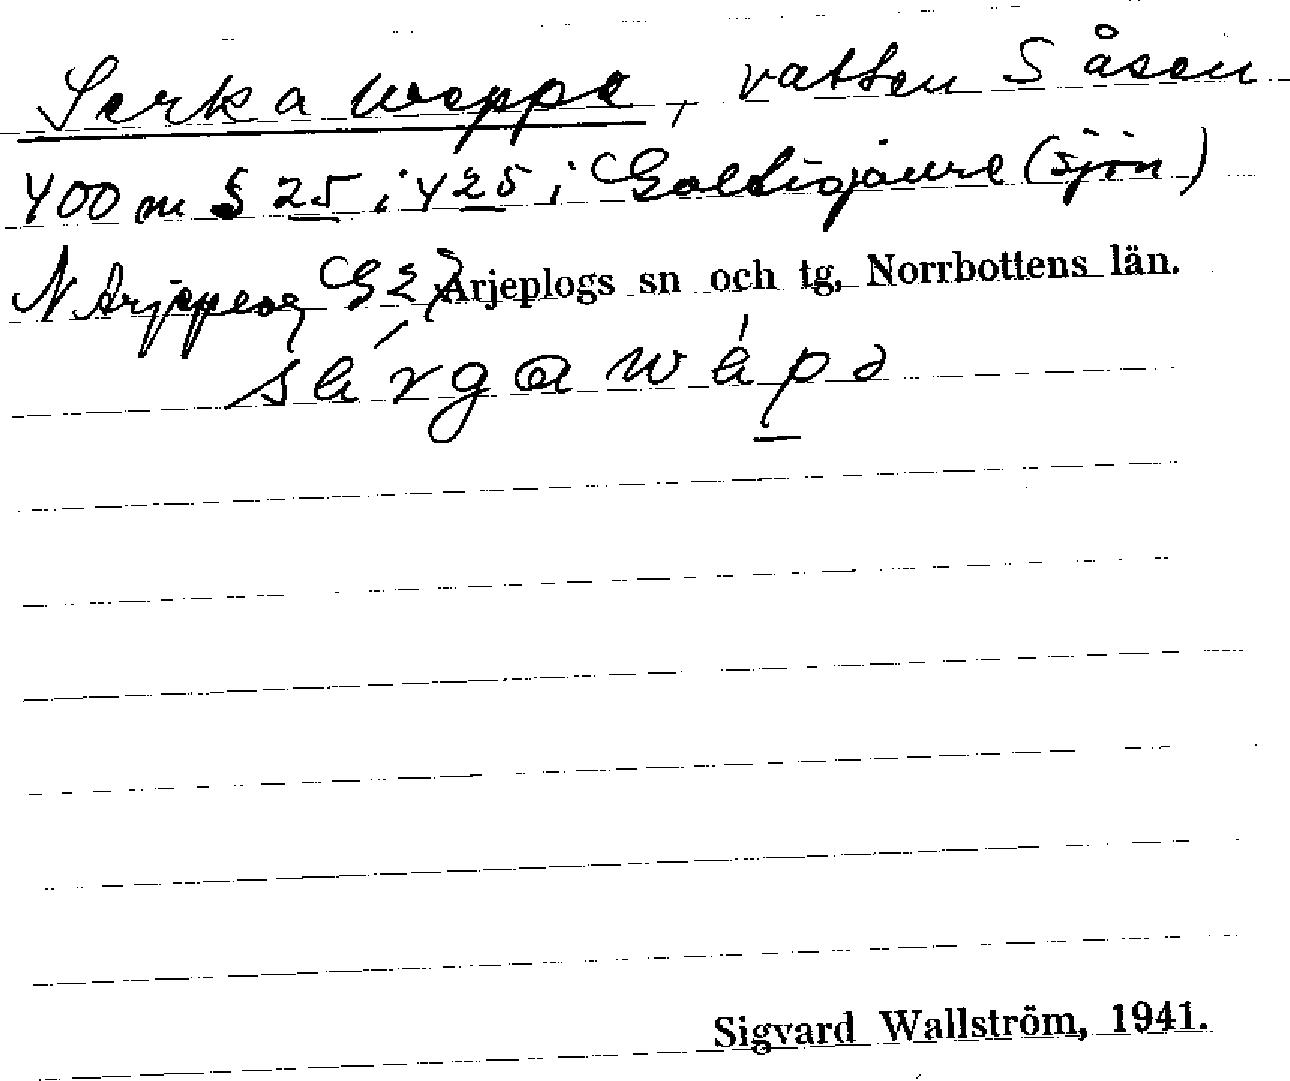 Serkaweppe, vatten S åsen
400 m S 25 i 425 i Galtisjaure (sjön)
N Arjeplog G2) Arjeplogs sn och tg, Norrbottens län.
Sigvard Wallström, 1941.